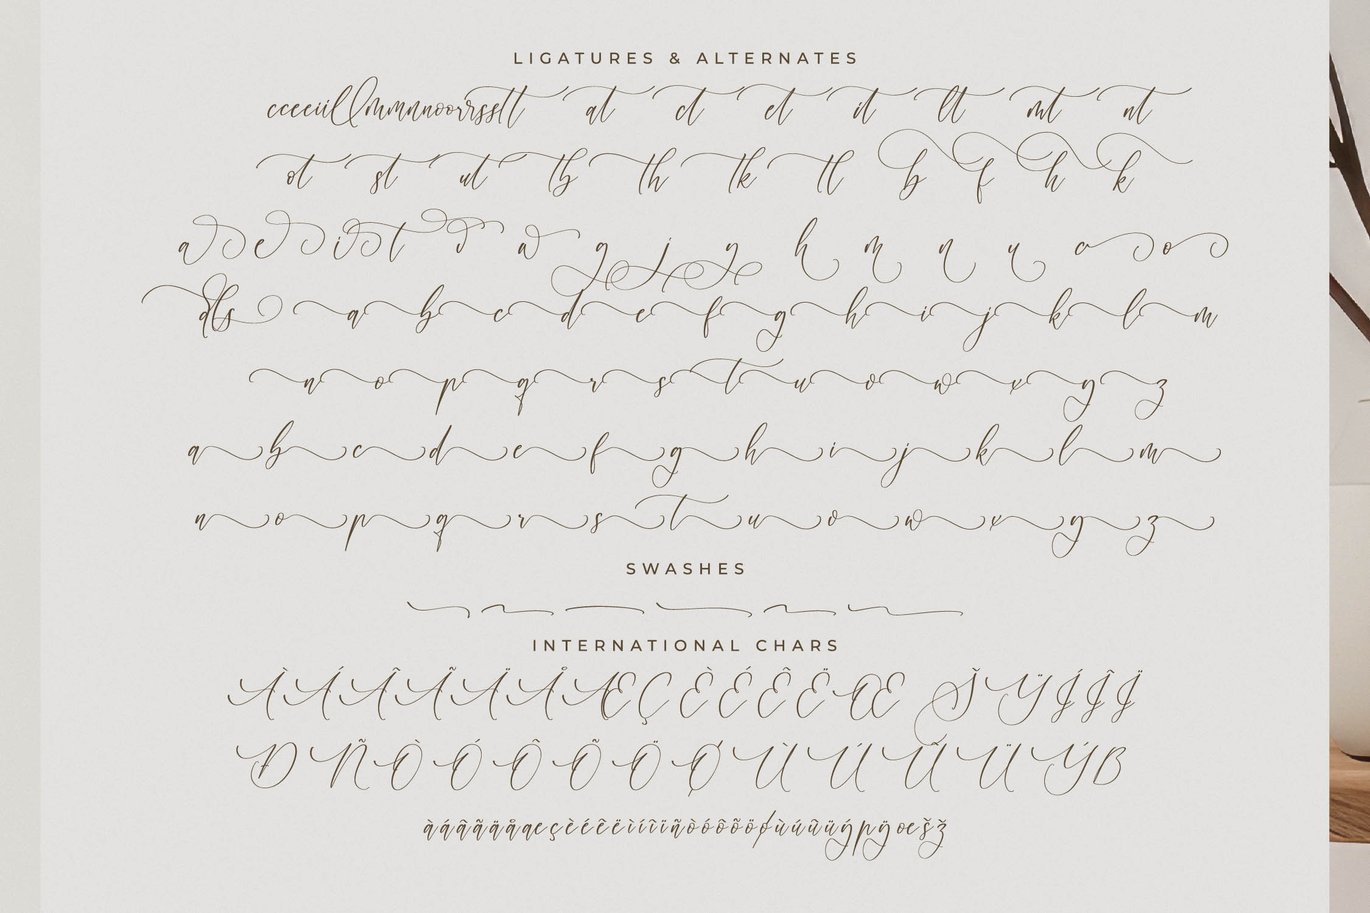 LIGATURES & ALTERNATES
cceeiillmmnnoorrsstt at ct et it lt mt nt
ot st ut tb th tk tl b f h k
a e i t v w g j y h m n u c o
ds a b c d e f g h i j k l m
n o p q r s t u v w x y z
a b c d e f g h i j k l m
n o p q r s t u v w x y z
SWASHES
INTERNATIONAL CHARS
À Á Â Ã Ä Å Æ Ç È É Ê Ë Œ Š Ÿ Í Î Ï
Ð Ñ Ò Ó Ô Õ Ö Ø Ù Ú Û Ü Ý
àáâãäåæçèéêëìíîïñòóôõöøùúûüýþÿœšž